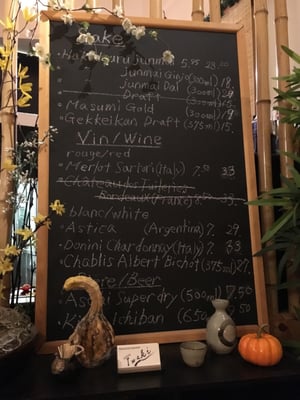 Sake
Junmai 5.95 28.00
Junmai Ginjo (300ml) 18
Junmai Dai (300ml)
Draft (300ml)
Masumi Gold (300ml)
Gekkeikan Draft (375ml) 15.
Vin/Wine
rouge/red
Merlot Sartori (Italy) 7.50 33
Chateau des Tourtes
Bordeaux (France) 8.50 35.
blanc/white
Astica (Argentina) 7. 29
Donini Chardonnay (Italy) 7. 33
Chablis Albert Bichot (375ml) 27.
Biere/Beer
Asahi Super dry (500ml) 7.50
Kirin Ichiban (650ml) .50